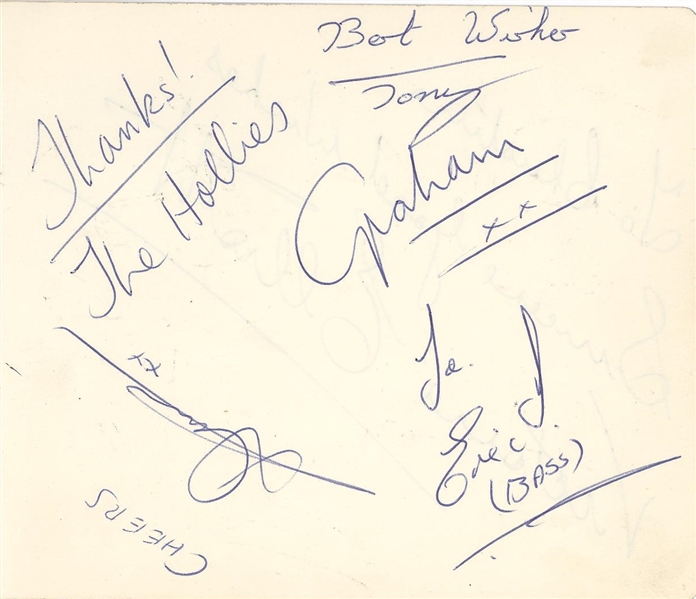 Best Wishes
Tony
Thanks!
The Hollies
Graham
xx
To.
Eric.
(BASS)
xx
CHEERS